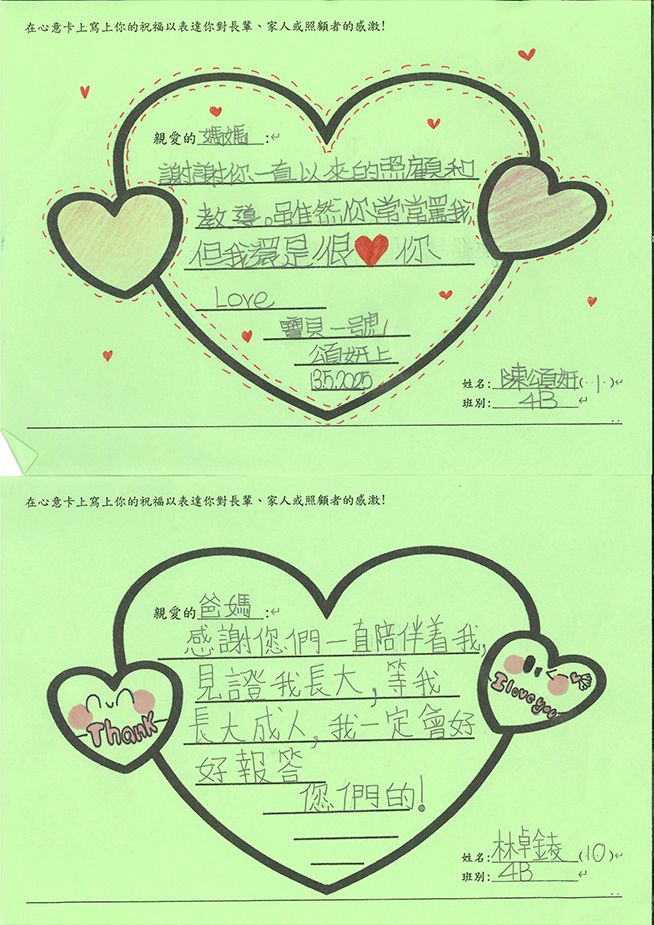 在心意卡上寫上你的祝福以表達你對長輩、家人或照顧者的感激!
親愛的媽媽:
謝謝你一直以來的照顧和
教導。雖然你當當罵我,
但我還是很❤你
Love
寶貝一號
頌妍上
13.5.2025
姓名:陳頌妍(1)
班別:4B
在心意卡上寫上你的祝福以表達你對長輩、家人或照顧者的感激!
親愛的爸媽:
感謝您們一直陪伴着我,
見證我長大,等我
長大成人,我一定會好
好報答
您們的!
Thank
I love you
姓名:林卓錂(10)
班別:4B